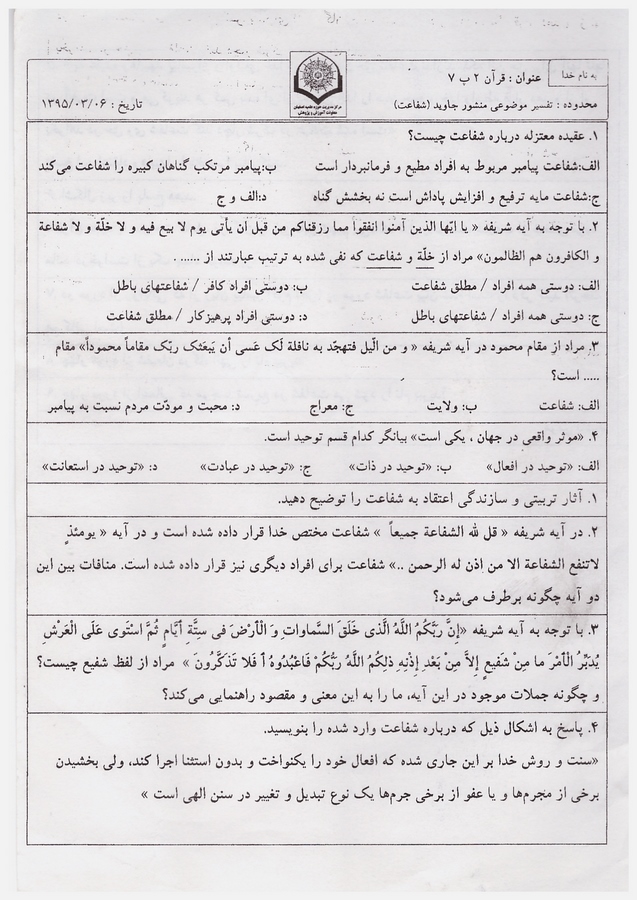 به نام خدا
عنوان : قرآن ۲ ب ۷
محدوده : تفسیر موضوعی منشور جاوید (شفاعت)
مرکز مدیریت حوزه علمیه اصفهان
معاونت آموزش و پژوهش
تاریخ : ۱۳۹۵/۰۳/۰۶
۱. عقیده معتزله درباره شفاعت چیست؟
الف:شفاعت پیامبر مربوط به افراد مطیع و فرمانبردار است ب:پیامبر مرتکب گناهان کبیره را شفاعت می‌کند
ج:شفاعت مایه ترفیع و افزایش پاداش است نه بخشش گناه د:الف و ج
۲. با توجه به آیه شریفه « یا ایّها الذین آمنوا انفقوا مما رزقناکم من قبل أن یأتی یوم لا بیع فیه و لا خلّة و لا شفاعة
و الکافرون هم الظالمون» مراد از خلّة و شفاعت که نفی شده به ترتیب عبارتند از ...... .
الف: دوستی همه افراد / مطلق شفاعت ب: دوستی افراد کافر / شفاعتهای باطل
ج: دوستی همه افراد / شفاعتهای باطل د: دوستی افراد پرهیزکار / مطلق شفاعت
۳. مراد از مقام محمود در آیه شریفه « و من الّیل فتهجّد به نافلة لَک عَسی أن یَبعَثک ربّک مقاماً محموداً» مقام
..... است؟
الف: شفاعت ب: ولایت ج: معراج د: محبت و مودّت مردم نسبت به پیامبر
۴. «موثر واقعی در جهان ، یکی است» بیانگر کدام قسم توحید است.
الف: «توحید در افعال» ب: «توحید در ذات» ج: «توحید در عبادت» د: «توحید در استعانت»
۱. آثار تربیتی و سازندگی اعتقاد به شفاعت را توضیح دهید.
۲. در آیه شریفه « قل لله الشفاعة جمیعاً » شفاعت مختص خدا قرار داده شده است و در آیه « یومئذٍ
لاتنفع الشفاعة الا من اذن له الرحمن ..» شفاعت برای افراد دیگری نیز قرار داده شده است. منافات بین این
دو آیه چگونه برطرف می‌شود؟
۳. با توجه به آیه شریفه «إِنَّ رَبَّكُمُ اللَّهُ الَّذی خَلَقَ السَّماواتِ وَ الْأَرْضَ فی سِتَّةِ أَیَّامٍ ثُمَّ اسْتَوی عَلَی الْعَرْشِ
یُدَبِّرُ الْأَمْرَ ما مِنْ شَفیعٍ إِلاَّ مِنْ بَعْدِ إِذْنِهِ ذلِكُمُ اللَّهُ رَبُّكُمْ فَاعْبُدُوهُ أَ فَلا تَذَكَّرُونَ » مراد از لفظ شفیع چیست؟
و چگونه جملات موجود در این آیه، ما را به این معنی و مقصود راهنمایی می‌کند؟
۴. پاسخ به اشکال ذیل که درباره شفاعت وارد شده را بنویسید.
«سنت و روش خدا بر این جاری شده که افعال خود را یکنواخت و بدون استثنا اجرا کند، ولی بخشیدن
برخی از مجرم‌ها و یا عفو از برخی جرم‌ها یک نوع تبدیل و تغییر در سنن الهی است »